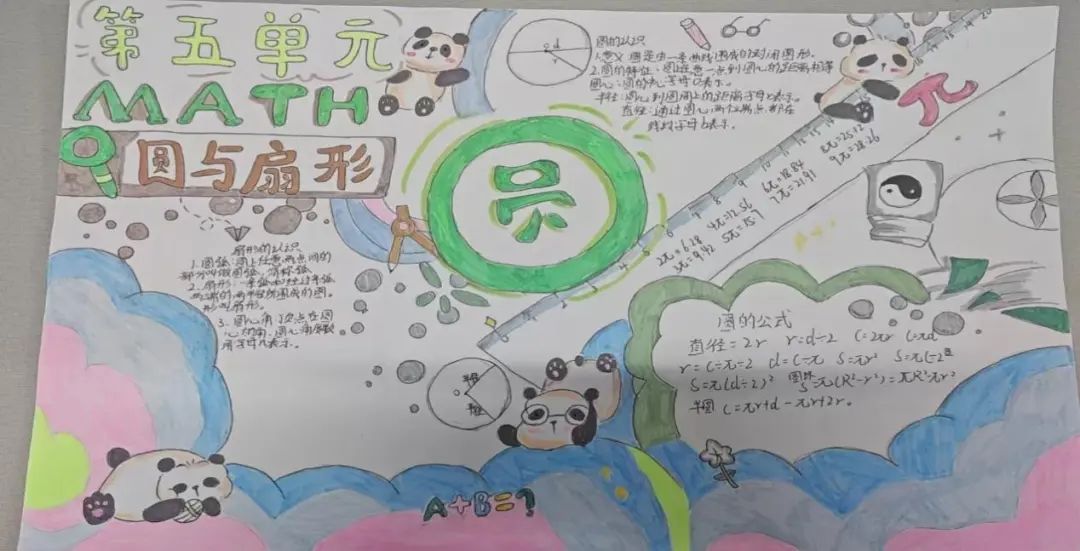 第五单元
MATH
圆与扇形
圆的认识
1.意义:圆是由一条曲线围成的封闭图形。
2.圆的特征:圆上任意一点到圆心的距离相等
圆心:圆的中心 字母O表示。
半径:圆心到圆周上的距离字母r表示。
直径:通过圆心,两个端点都在
线段字母d表示。
d
r
π
扇形的认识
1.圆弧:圆上任意两点间的
部分叫做圆弧,简称弧
2.扇形:一条弧和经过这条弧
两端的两半径所围成的图
形叫扇形。
3.圆心角:顶点在圆
心的角,圆心角
用字母n表示。
2π=6.28
3π=9.42
4π=12.56
5π=15.7
6π=18.84
7π=21.91
8π=25.12
9π=28.26
半径
半径
圆的公式
直径=2r r=d÷2 C=2πr C=πd
r=C÷π÷2 d=C÷π S=πr²
S=π(d÷2)² 圆环 S=π(R²-r²)=πR²-πr²
半圆 C=πr+d=πr+2r。
A+B=?